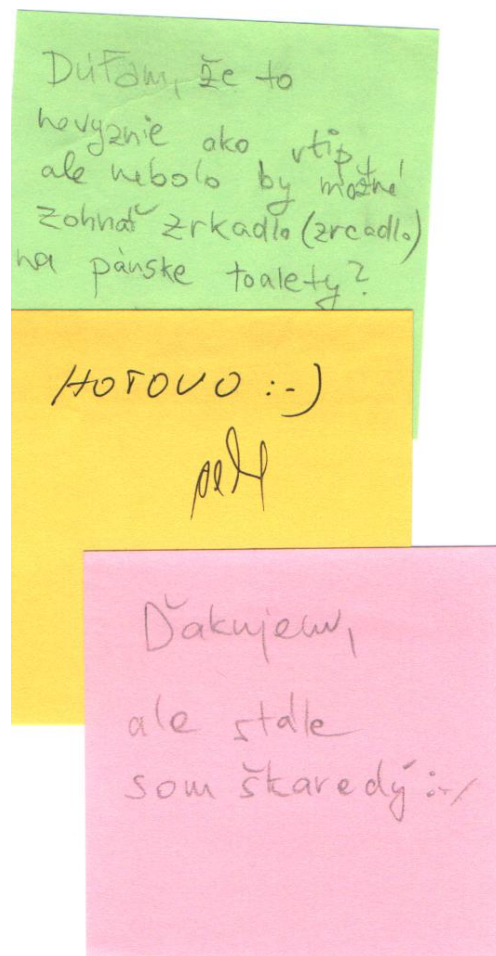 Dúfam, že to
nevyznie ako vtip,
ale nebolo by možné
zohnať zrkadlo (zrcadlo)
na pánske toalety?
HOTOVO :-)
Ďakujem,
ale stále
som škaredý :-/